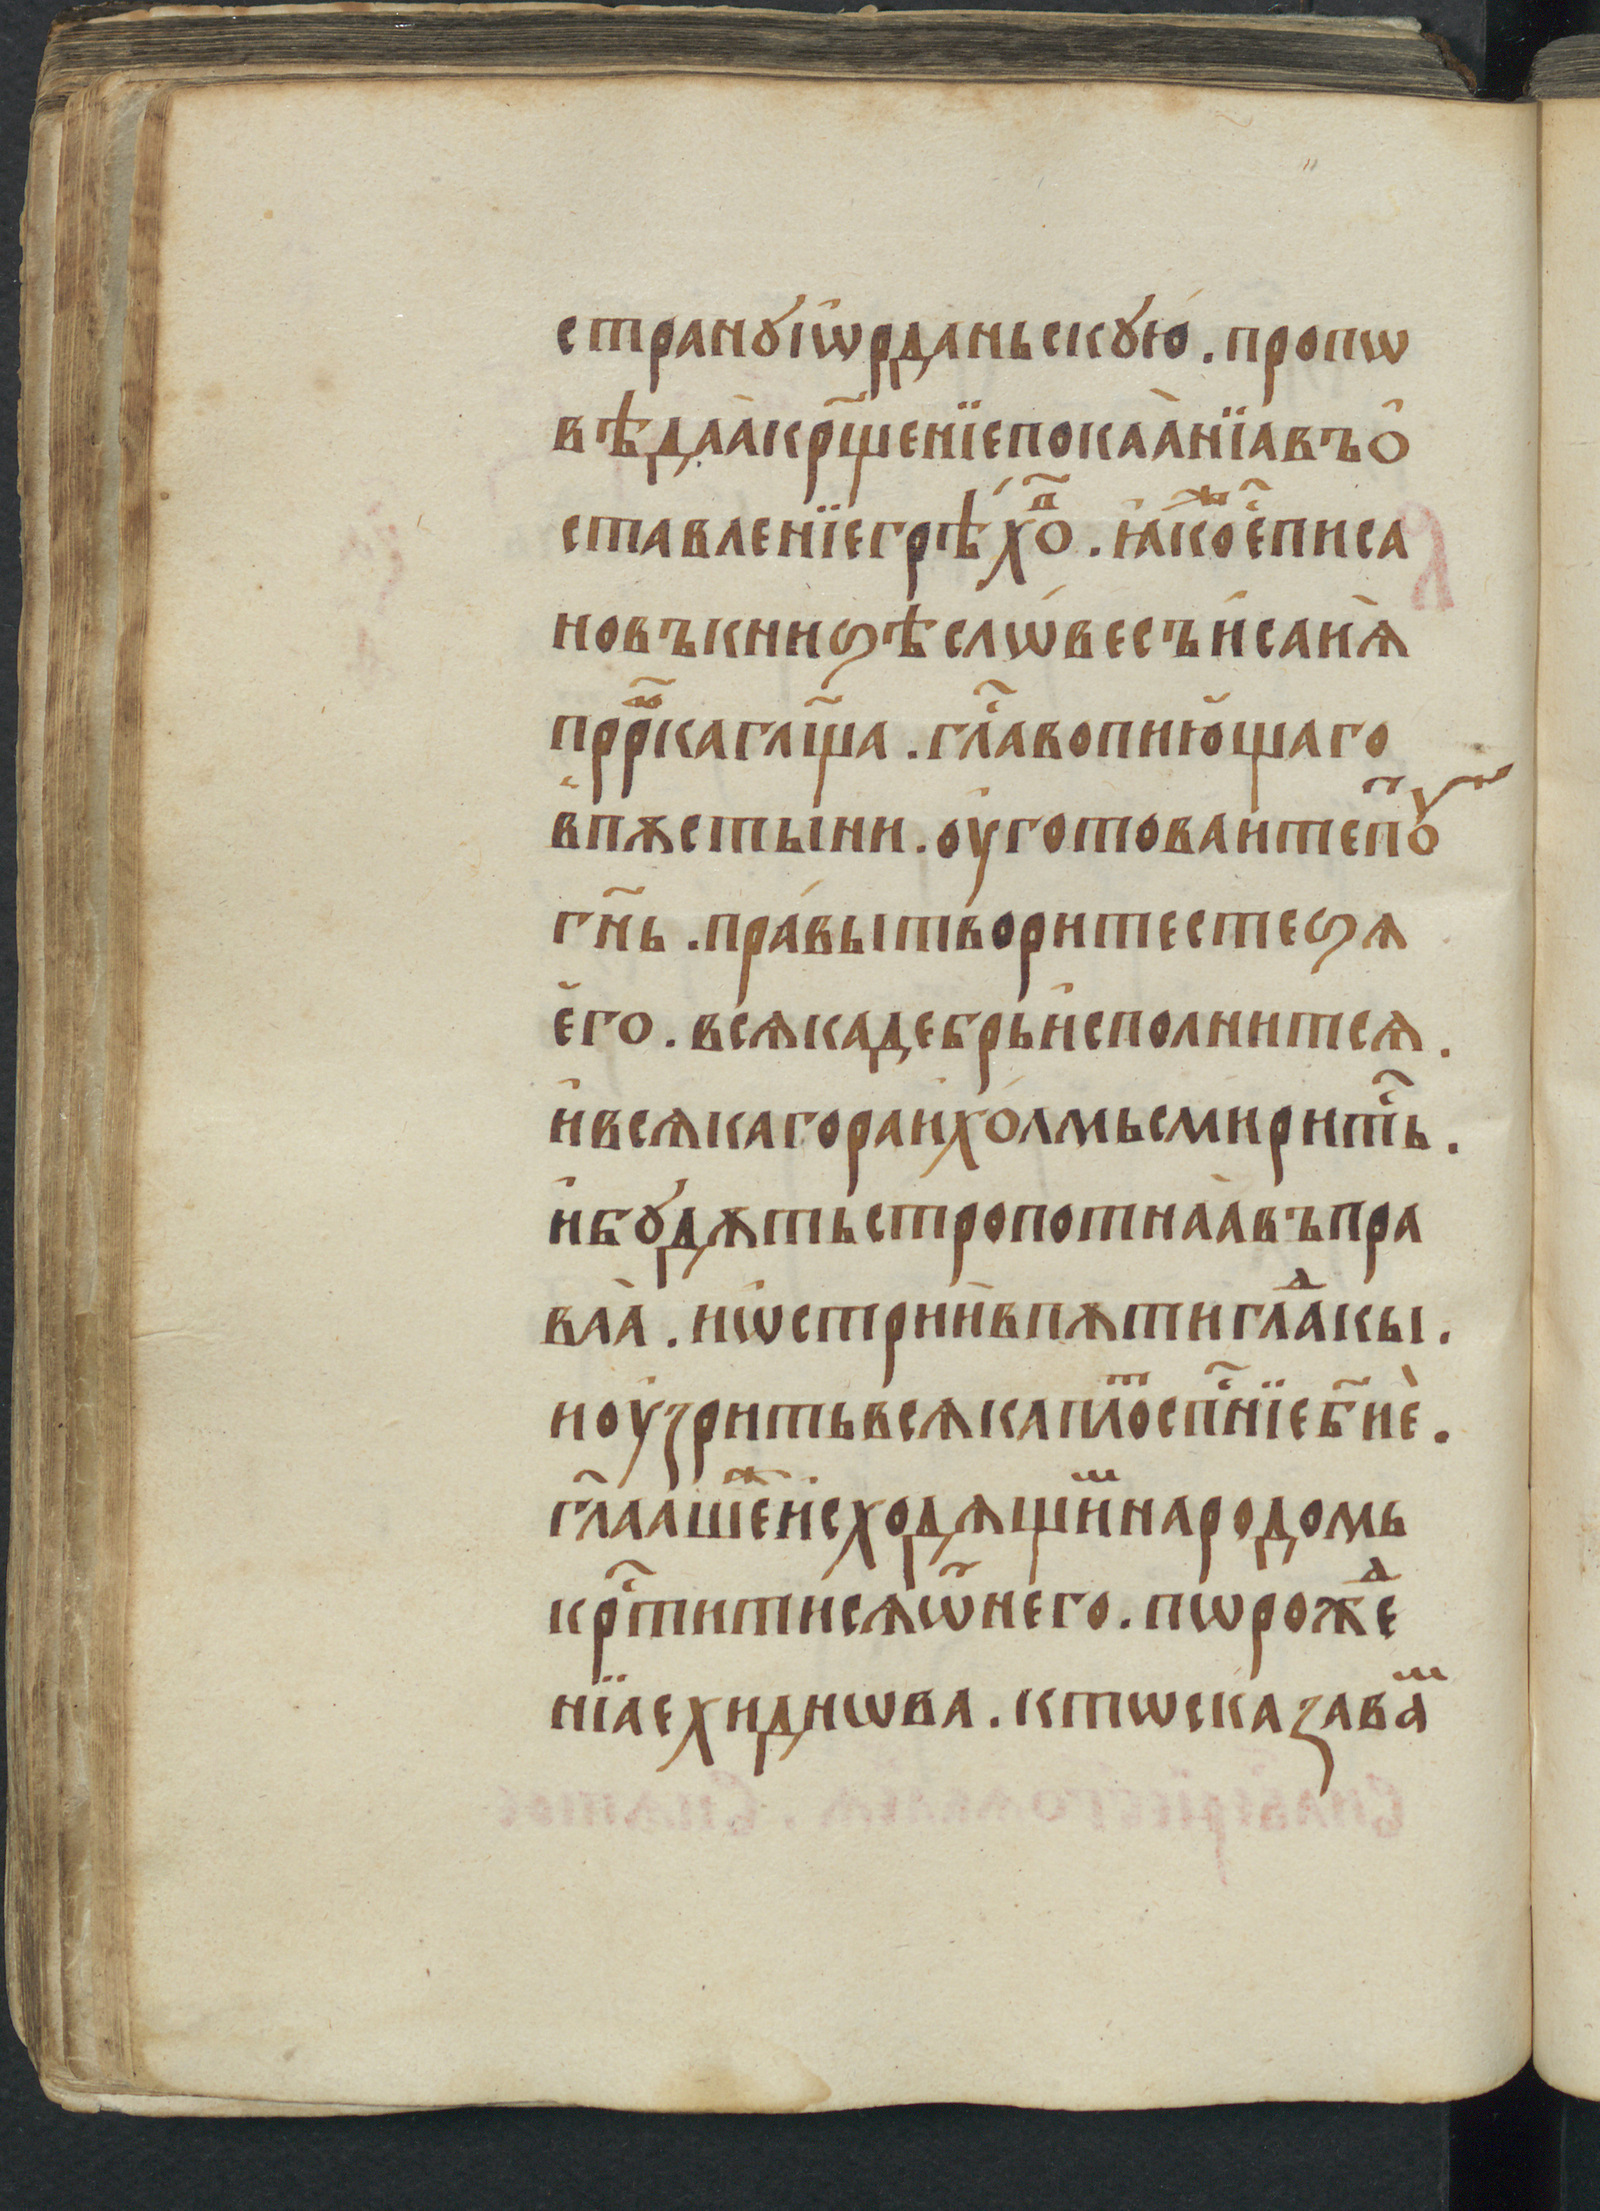 странꙋ іѡ҆рданьскꙋю҆ . пропѡ
вѣдаа҆ кр҃щенїе покаа҆нїа въ о҆
ставленїе грѣхо҃в . ꙗ҆кож е҆҃ писа
но въ книѕѣ слѡ́весъ и҆саи҆ѧ
прⷪ҇рка гл҃ща . гла҇ вопию҆щаго
в҆ пѫстыни . оу҆готоваите по҃у
гн҃ь . пра́вы творите стеѕѧ
е҆го . всѧка дебрь и҆сполнитсѧ .
и҆ всѧка гора и҆ хо́лмь смирит҇ь .
и҆ бꙋдѫть стропотнаа҆ въ пра
ваа҆ . и ѡ҆стрии҆ в пѫти глаⷣкы .
и оу҆зрить всѧка плоⷮ сп҇нїе б҃ие҆ .
гл҃ааше ⷤ и҆сходѧщиⷨ народомь
кр҇титисѧ ѿ него . пѡрожⷣе
нїа ехиднѡва . ктѡ сказа ваⷨ